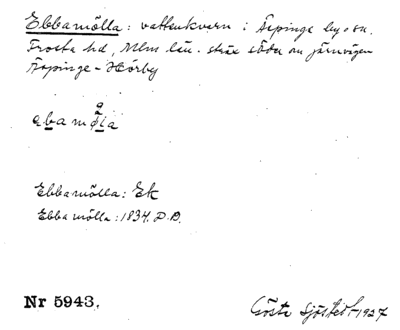 Ebbamölla: vattenkvarn i Äspinge by o sn.
Frosta hd, Mlm län. strax söder om järnvägen
Äspinge - Hörby
Ebbamölla: Ek
Ebbamölla: 1834. D.B.
Nr 5943.
Gösta Sjöstedt 1927